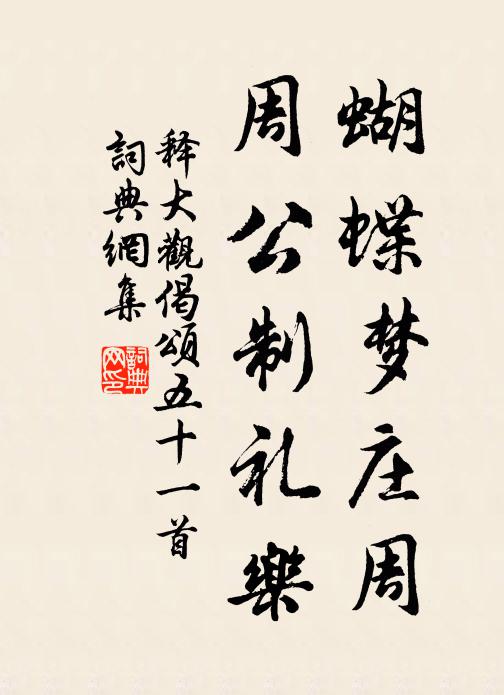 蝴蝶梦庄周
周公制礼樂
释大觀偈頌五十一首
詞典網集
詞典网印